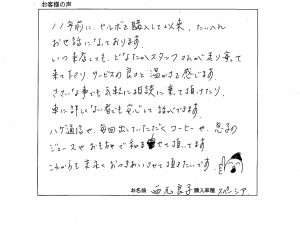 お客様の声
11年前に、セルボを購入して以来、たいへん
お世話になっております。
いつ来店しても、どなたかスタッフさんが走り寄って
来て下さり、サービスの良さと温かさを感じます。
ささいな事でも気軽に相談に乗って頂けたり、
車に詳しくない者でも安心して話ができます。
ハガ通信や、毎回出していただくコーヒーや、息子の
ジュースやおもちゃで和ませて頂いてます。
これからも末永くおつきあいさせて頂きたいです。
お名前 西元良子 購入車種 スペーシア